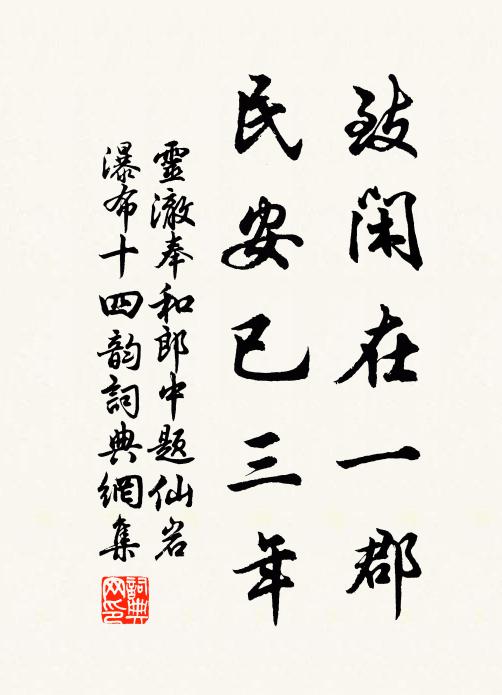 致闲在一郡
民安已三年
靈澈奉和郎中题仙岩
瀑布十四韵詞典網集
詞典
网印